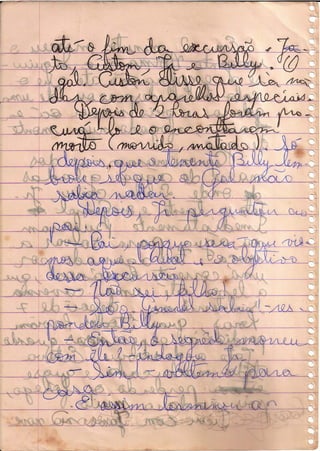 até o fim da excursão. Ja-
to, Custon, Ji e Billy. O
gal. Custon disse que ia na-
dar com aparelhos especiais.
Depois de 2 horas foram pro-
curá-lo e o encontraram
morto (morrido, matado). Só
depois, que o tenente Billy lem-
brou-se que o Gal. não
sabia nadar.
Depois, Ji perguntou ao
— Pai, porque
essa excursão
— Não sei, filho
— Só o general sabia - res-
pondeu Billy
— Então o segredo morreu
com ele? - indagou Ja
— Sim - voltemos para
casa.
E assim terminou a